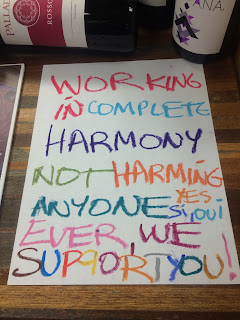 PALLAD
ROSSO
NA.
WORKING
IN COMPLETE
HARMONY
NOT HARMING
YES
ANYONE SI, OUI
EVER, WE
SUPPORT YOU!